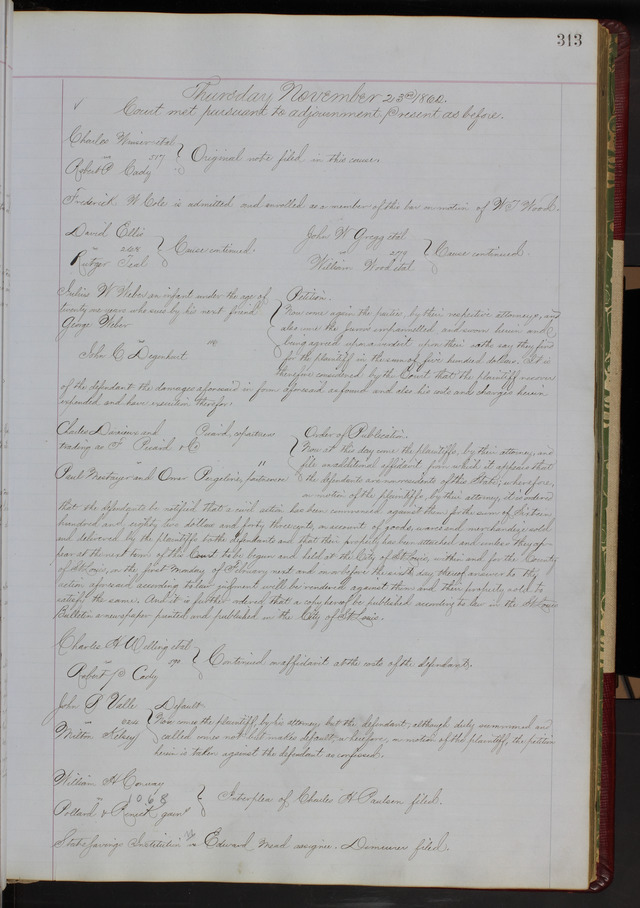 313
Thursday November 23rd 1860.
Court met pursuant to adjournment, Present as before.
Charles et al
vs 317 Original note filed in this cause.
Robert P Cady
Frederick W Cole is admitted and enrolled as a member of the bar on motion of W T Wood.
David Ellis John W Gregg et al
vs 248 Cause continued. vs 279 Cause continued.
Teal William Wood et al
Julius W Weber an infant under the age of Petition.
twenty one years who sues by his next friend Now come again the parties, by their respective attorneys, and
George Weber also come the Jurors empannelled and sworn herein and
vs 110 being agreed upon a verdict upon their oaths say they find
John C Degenhart for the plaintiff in the sum of five hundred dollars. It is
therefore considered by the Court that the plaintiff recover
of the defendant the damages aforesaid in form aforesaid as found and also his costs and charges herein
expended and have execution therefor.
Charles and copartners Order of Publication.
trading as & Co Now at this day come the plaintiffs, by their attorney, and
vs 11 file an additional affidavit from which it appears that
Paul and Omar partners the defendants are non residents of this State; wherefore,
on motion of the plaintiffs, by their attorney, it is ordered
that the defendants be notified that a civil action has been commenced against them for the sum of Sixteen
hundred and eighty two dollars and forty three cents, on account of goods, wares and merchandize sold
and delivered by the plaintiffs to the defendants and that their property has been attached and unless they ap-
pear at the next term of the Court to be begun and held at the City of St Louis, within and for the County
of St Louis, on the first Monday of February next and on or before the sixth day thereof answer to the
action aforesaid according to law judgment will be rendered against them and their property sold to
satisfy the same. And it is further ordered that a copy hereof be published according to law in the St Louis
Bulletin a newspaper printed and published in the City of St Louis.
Charles H Welling et al
vs 190 Continued on affidavit at the costs of the defendant.
Robert P Cady
John P Valle Default
vs 624 Now comes the plaintiff, by his attorney but the defendant, although duly summoned and
Milton Kelsey called comes not but makes default, wherefore, on motion of the plaintiff, the petition
herein is taken against the defendant as confessed.
William H Conway
vs 1068 Interplea of Charles H Paulson filed.
Pollard & garn.
State Savings Institution vs Edward Mead assignee. Demurrer filed.